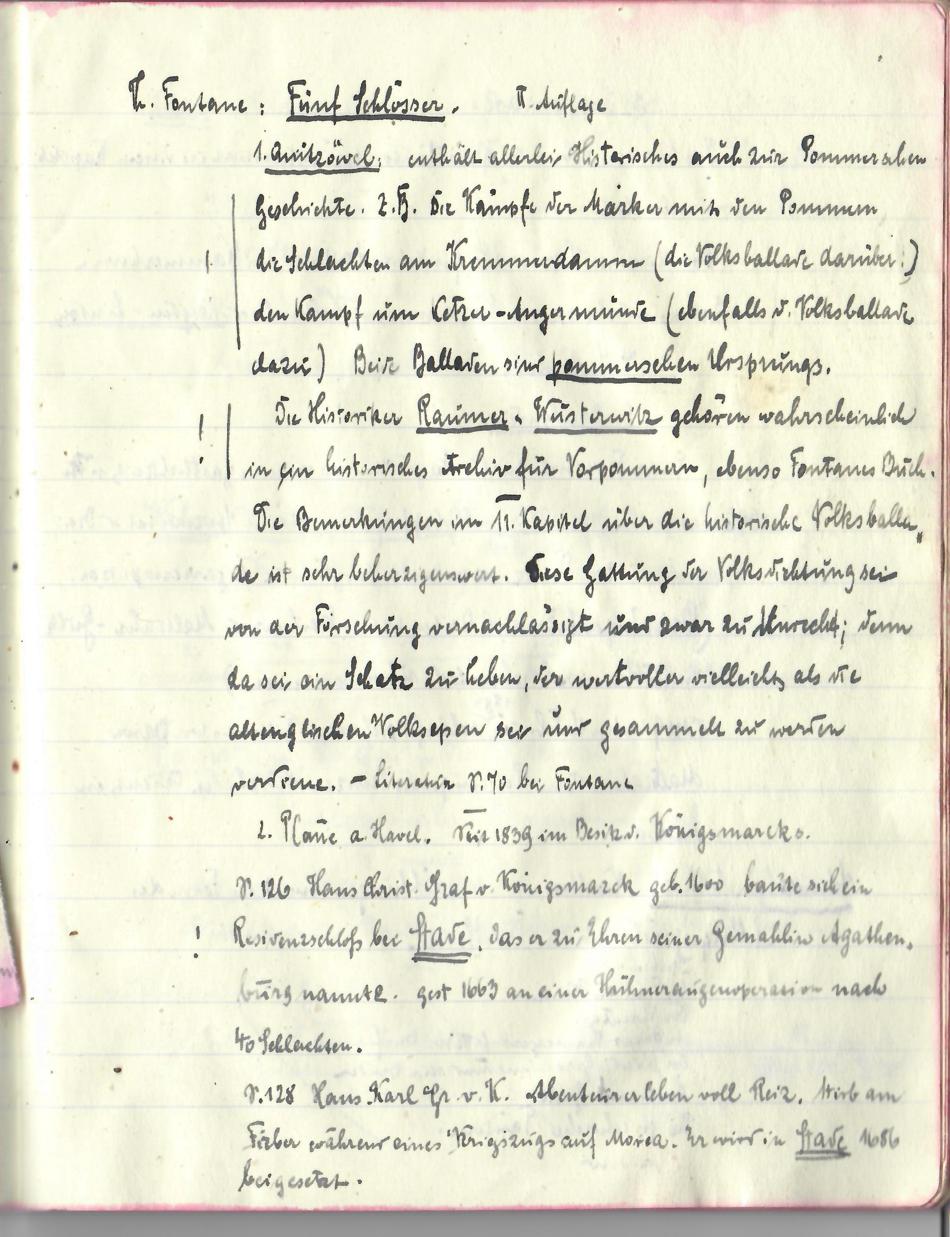 Th. Fontane: Fünf Schlösser. II Auflage
1. Quitzöwel; enthält allerlei Historisches auch zur Pommerschen
Geschichte. z.B. Die Kämpfe der Märker mit den Pommern
die Schlachten am Kremmerdamm (die Volksballade darüber!)
den Kampf um Ketzer-Angermünde (ebenfalls d. Volksballade
dazu) Beide Balladen sind pommerschen Ursprungs.
Die Historiker Raumer u. Wusterwitz gehören wahrscheinlich
in ein historisches Archiv für Vorpommern, ebenso Fontanes Buch.
Die Bemerkungen im 11. Kapitel über die historische Volksballa„
de ist sehr beherzigenswert. Diese Gattung der Volksdichtung sei
von der Forschung vernachlässigt und zwar zu Unrecht; denn
da sei ein Schatz zu heben, der wertvoller vielleicht, als die
altenglischen Volksepen sei und gesammelt zu werden
verdiene. – Literatur S. 70 bei Fontane
2. Plaue a. Havel. Seit 1839 im Besitz d. Königsmarcks.
S. 126 Hans Christ. Graf v. Königsmarck geb. 1600 baute sich ein
Residenzschloß bei Stade, das er zu Ehren seiner Gemahlin Agathen,
burg nannte. gest 1663 an einer Hühneraugenoperation nach
40 Schlachten.
S. 128 Hans Karl Gr. v. K. Abenteurerleben voll Reiz. Stirb am
Fieber während eines Kriegszugs auf Morea. Er wird in Stade 1686
beigesetzt.